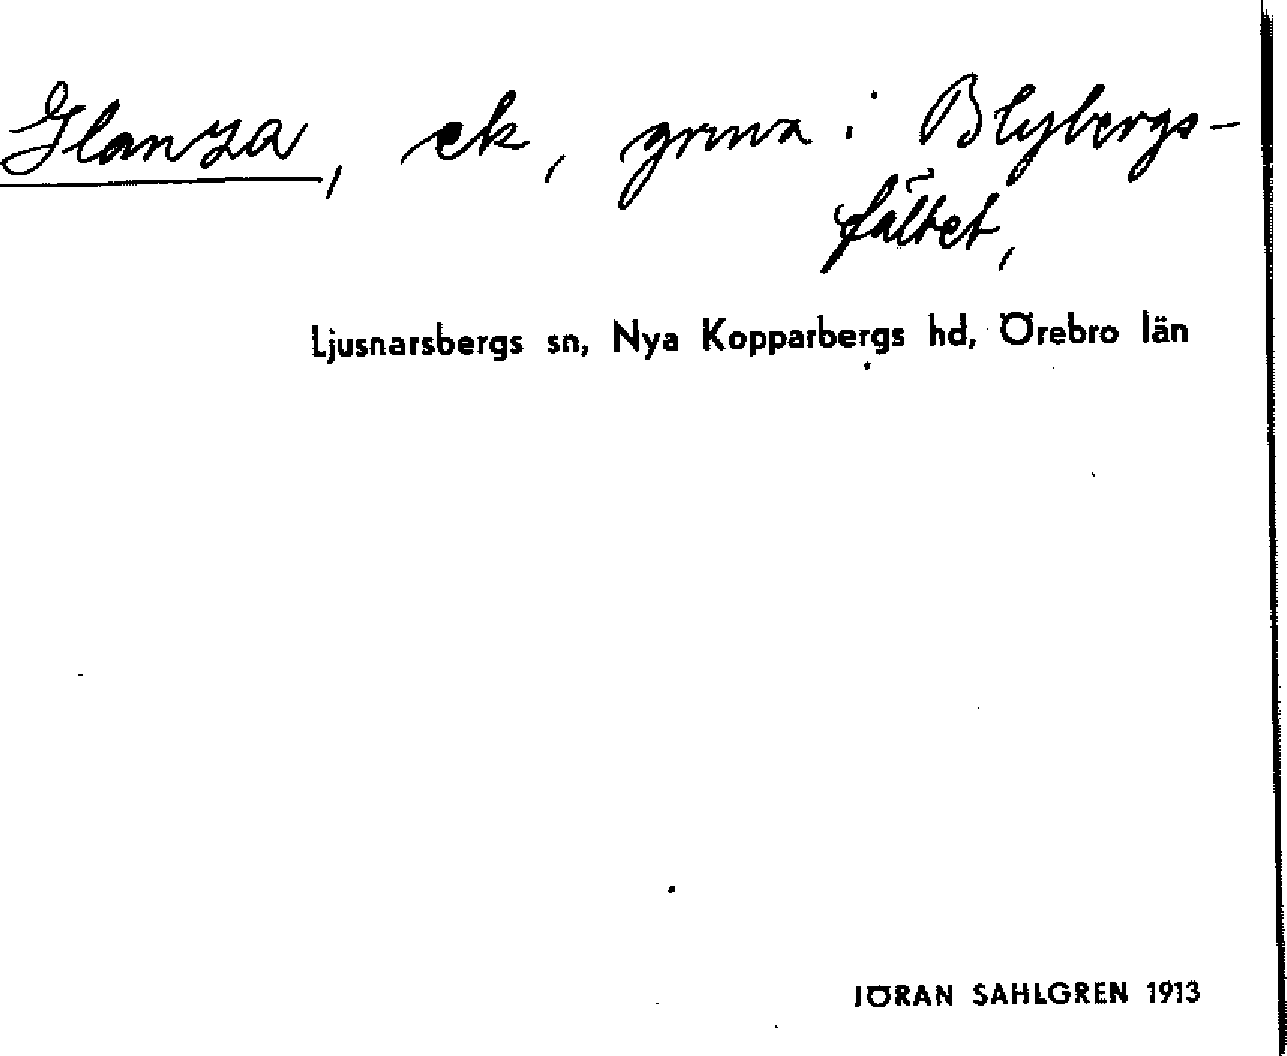 Glanza, ek, gruva i Blybergs-
fältet,
Ljusnarsbergs sn, Nya Kopparbergs hd, Örebro län
JÖRAN SAHLGREN 1913